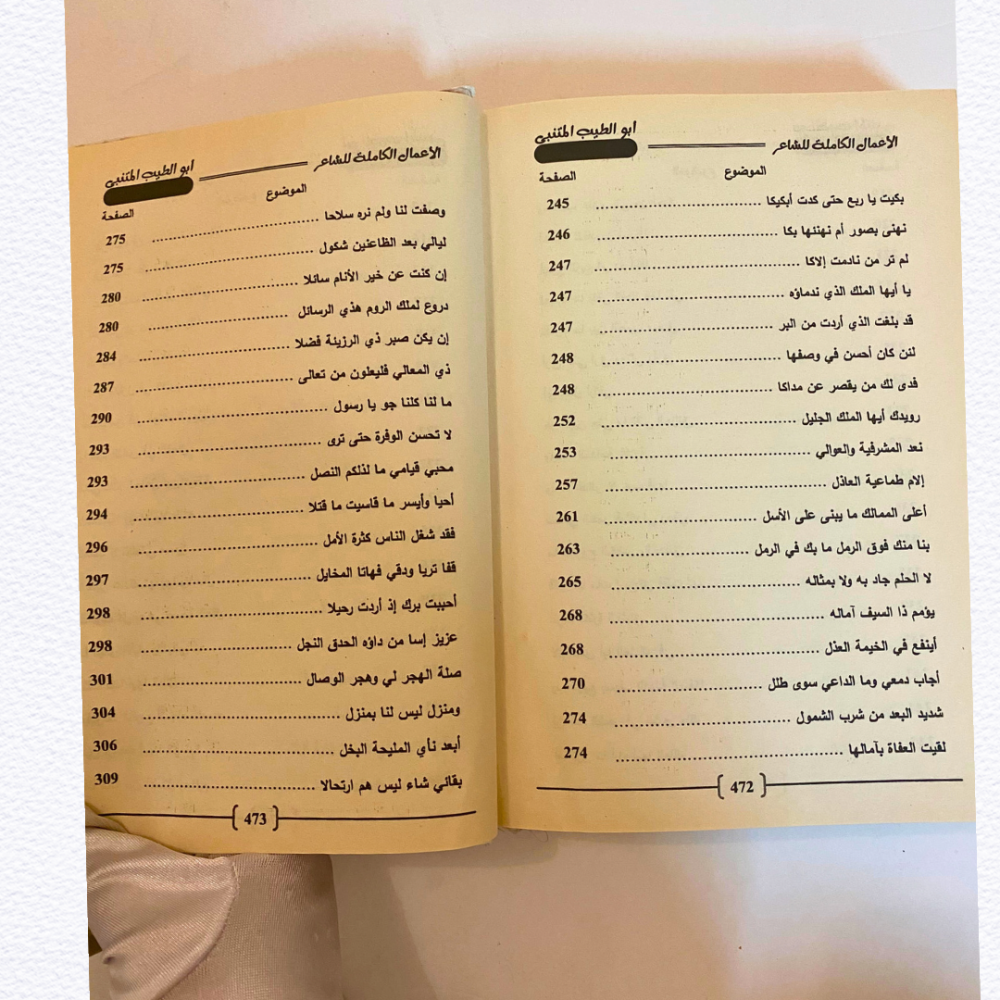 الأعمال الكاملة للشاعر أبو الطيب المتنبي
الموضوع الصفحة
بكيت يا ربع حتى كدت أبكيكا 245
تهنى بصور أم نهنئها بكا 246
لم تر من نادمت إلاكا 247
يا أيها الملك الذي ندماؤه 247
قد بلغت الذي أردت من البر 247
لئن كان أحسن في وصفها 248
فدى لك من يقصر عن مداكا 248
رويدك أيها الملك الجليل 252
نعد المشرفية والعوالي 253
إلام طماعية العاذل 257
أعلى الممالك ما يبنى على الأسل 261
بنا منك فوق الرمل ما بك في الرمل 263
لا الحلم جاد به ولا بمثاله 265
يؤمم ذا السيف آماله 268
أينفع في الخيمة العذل 268
أجاب دمعي وما الداعي سوى طلل 270
شديد البعد من شرب الشمول 274
لقيت العفاة بآمالها 274
472
الأعمال الكاملة للشاعر أبو الطيب المتنبي
الموضوع الصفحة
وصفت لنا ولم نره سلاحا 275
ليالي بعد الظاعنين شكول 275
إن كنت عن خير الأنام سائلا 280
دروع لملك الروم هذي الرسائل 280
إن يكن صبر ذي الرزيئة فضلا 284
ذي المعالي فليعلون من تعالى 287
ما لنا كلنا جو يا رسول 290
لا تحسن الوفرة حتى ترى 293
محبي قيامي ما لذلكم النصل 293
أحيا وأيسر ما قاسيت ما قتلا 294
فقد شغل الناس كثرة الأمل 296
قفا تريا ودقي فهاتا المخايل 297
أحببت برك إذ أردت رحيلا 298
عزيز إسا من داؤه الحدق النجل 298
صلة الهجر لي وهجر الوصال 301
ومنزل ليس لنا بمنزل 304
أبعد نأي المليحة البخل 306
بقائي شاء ليس هم ارتحالا 309
473